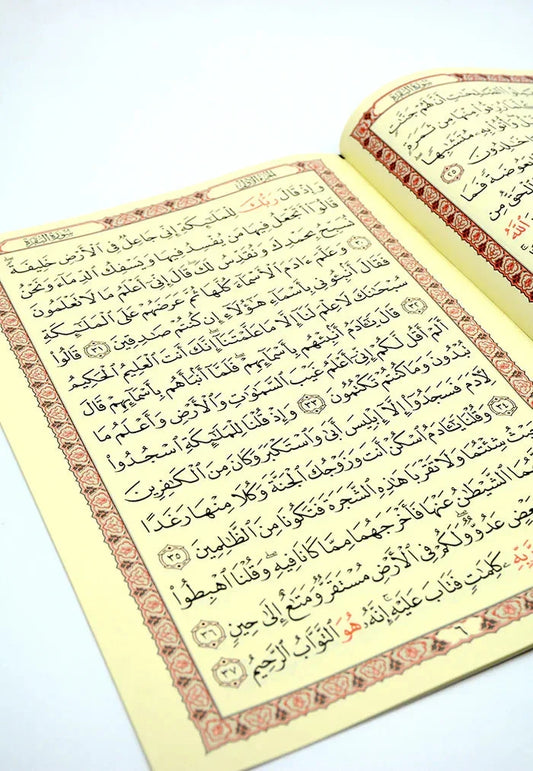 سُورَةُ البَقَرَةِ
ٱلصَّٰلِحَٰتِ أَنَّ لَهُمۡ جَنَّٰتٍ
رُزِقُواْ مِنۡهَا مِن ثَمَرَةٖ
وَأُتُواْ بِهِۦ مُتَشَٰبِهٗاۖ
خَٰلِدُونَ ٢٥
بَعُوضَةٗ فَمَا
ٱلۡحَقُّ مِن
ٱللَّهُ
الجزء الأول
سُورَةُ البَقَرَةِ
وَإِذۡ قَالَ رَبُّكَ لِلۡمَلَٰٓئِكَةِ إِنِّي جَاعِلٞ فِي ٱلۡأَرۡضِ خَلِيفَةٗۖ
قَالُوٓاْ أَتَجۡعَلُ فِيهَا مَن يُفۡسِدُ فِيهَا وَيَسۡفِكُ ٱلدِّمَآءَ وَنَحۡنُ
نُسَبِّحُ بِحَمۡدِكَ وَنُقَدِّسُ لَكَۖ قَالَ إِنِّيٓ أَعۡلَمُ مَا لَا تَعۡلَمُونَ
٣٠ وَعَلَّمَ ءَادَمَ ٱلۡأَسۡمَآءَ كُلَّهَا ثُمَّ عَرَضَهُمۡ عَلَى ٱلۡمَلَٰٓئِكَةِ
فَقَالَ أَنۢبِـُٔونِي بِأَسۡمَآءِ هَٰٓؤُلَآءِ إِن كُنتُمۡ صَٰدِقِينَ ٣١ قَالُواْ
سُبۡحَٰنَكَ لَا عِلۡمَ لَنَآ إِلَّا مَا عَلَّمۡتَنَآۖ إِنَّكَ أَنتَ ٱلۡعَلِيمُ ٱلۡحَكِيمُ
٣٢ قَالَ يَٰٓـَٔادَمُ أَنۢبِئۡهُم بِأَسۡمَآئِهِمۡۖ فَلَمَّآ أَنۢبَأَهُم بِأَسۡمَآئِهِمۡ قَالَ
أَلَمۡ أَقُل لَّكُمۡ إِنِّيٓ أَعۡلَمُ غَيۡبَ ٱلسَّمَٰوَٰتِ وَٱلۡأَرۡضِ وَأَعۡلَمُ مَا
تُبۡدُونَ وَمَا كُنتُمۡ تَكۡتُمُونَ ٣٣ وَإِذۡ قُلۡنَا لِلۡمَلَٰٓئِكَةِ ٱسۡجُدُواْ
لِأٓدَمَ فَسَجَدُوٓاْ إِلَّآ إِبۡلِيسَ أَبَىٰ وَٱسۡتَكۡبَرَ وَكَانَ مِنَ ٱلۡكَٰفِرِينَ
٣٤ وَقُلۡنَا يَٰٓـَٔادَمُ ٱسۡكُنۡ أَنتَ وَزَوۡجُكَ ٱلۡجَنَّةَ وَكُلَا مِنۡهَا رَغَدًا
حَيۡثُ شِئۡتُمَا وَلَا تَقۡرَبَا هَٰذِهِ ٱلشَّجَرَةَ فَتَكُونَا مِنَ ٱلظَّٰلِمِينَ ٣٥
ٱلشَّيۡطَٰنُ عَنۡهَا فَأَخۡرَجَهُمَا مِمَّا كَانَا فِيهِۖ وَقُلۡنَا ٱهۡبِطُواْ
عَدُوّٞۖ وَلَكُمۡ فِي ٱلۡأَرۡضِ مُسۡتَقَرّٞ وَمَتَٰعٌ إِلَىٰ حِينٖ ٣٦
رَّبِّهِۦ كَلِمَٰتٖ فَتَابَ عَلَيۡهِۚ إِنَّهُۥ هُوَ ٱلتَّوَّابُ ٱلرَّحِيمُ ٣٧
٦